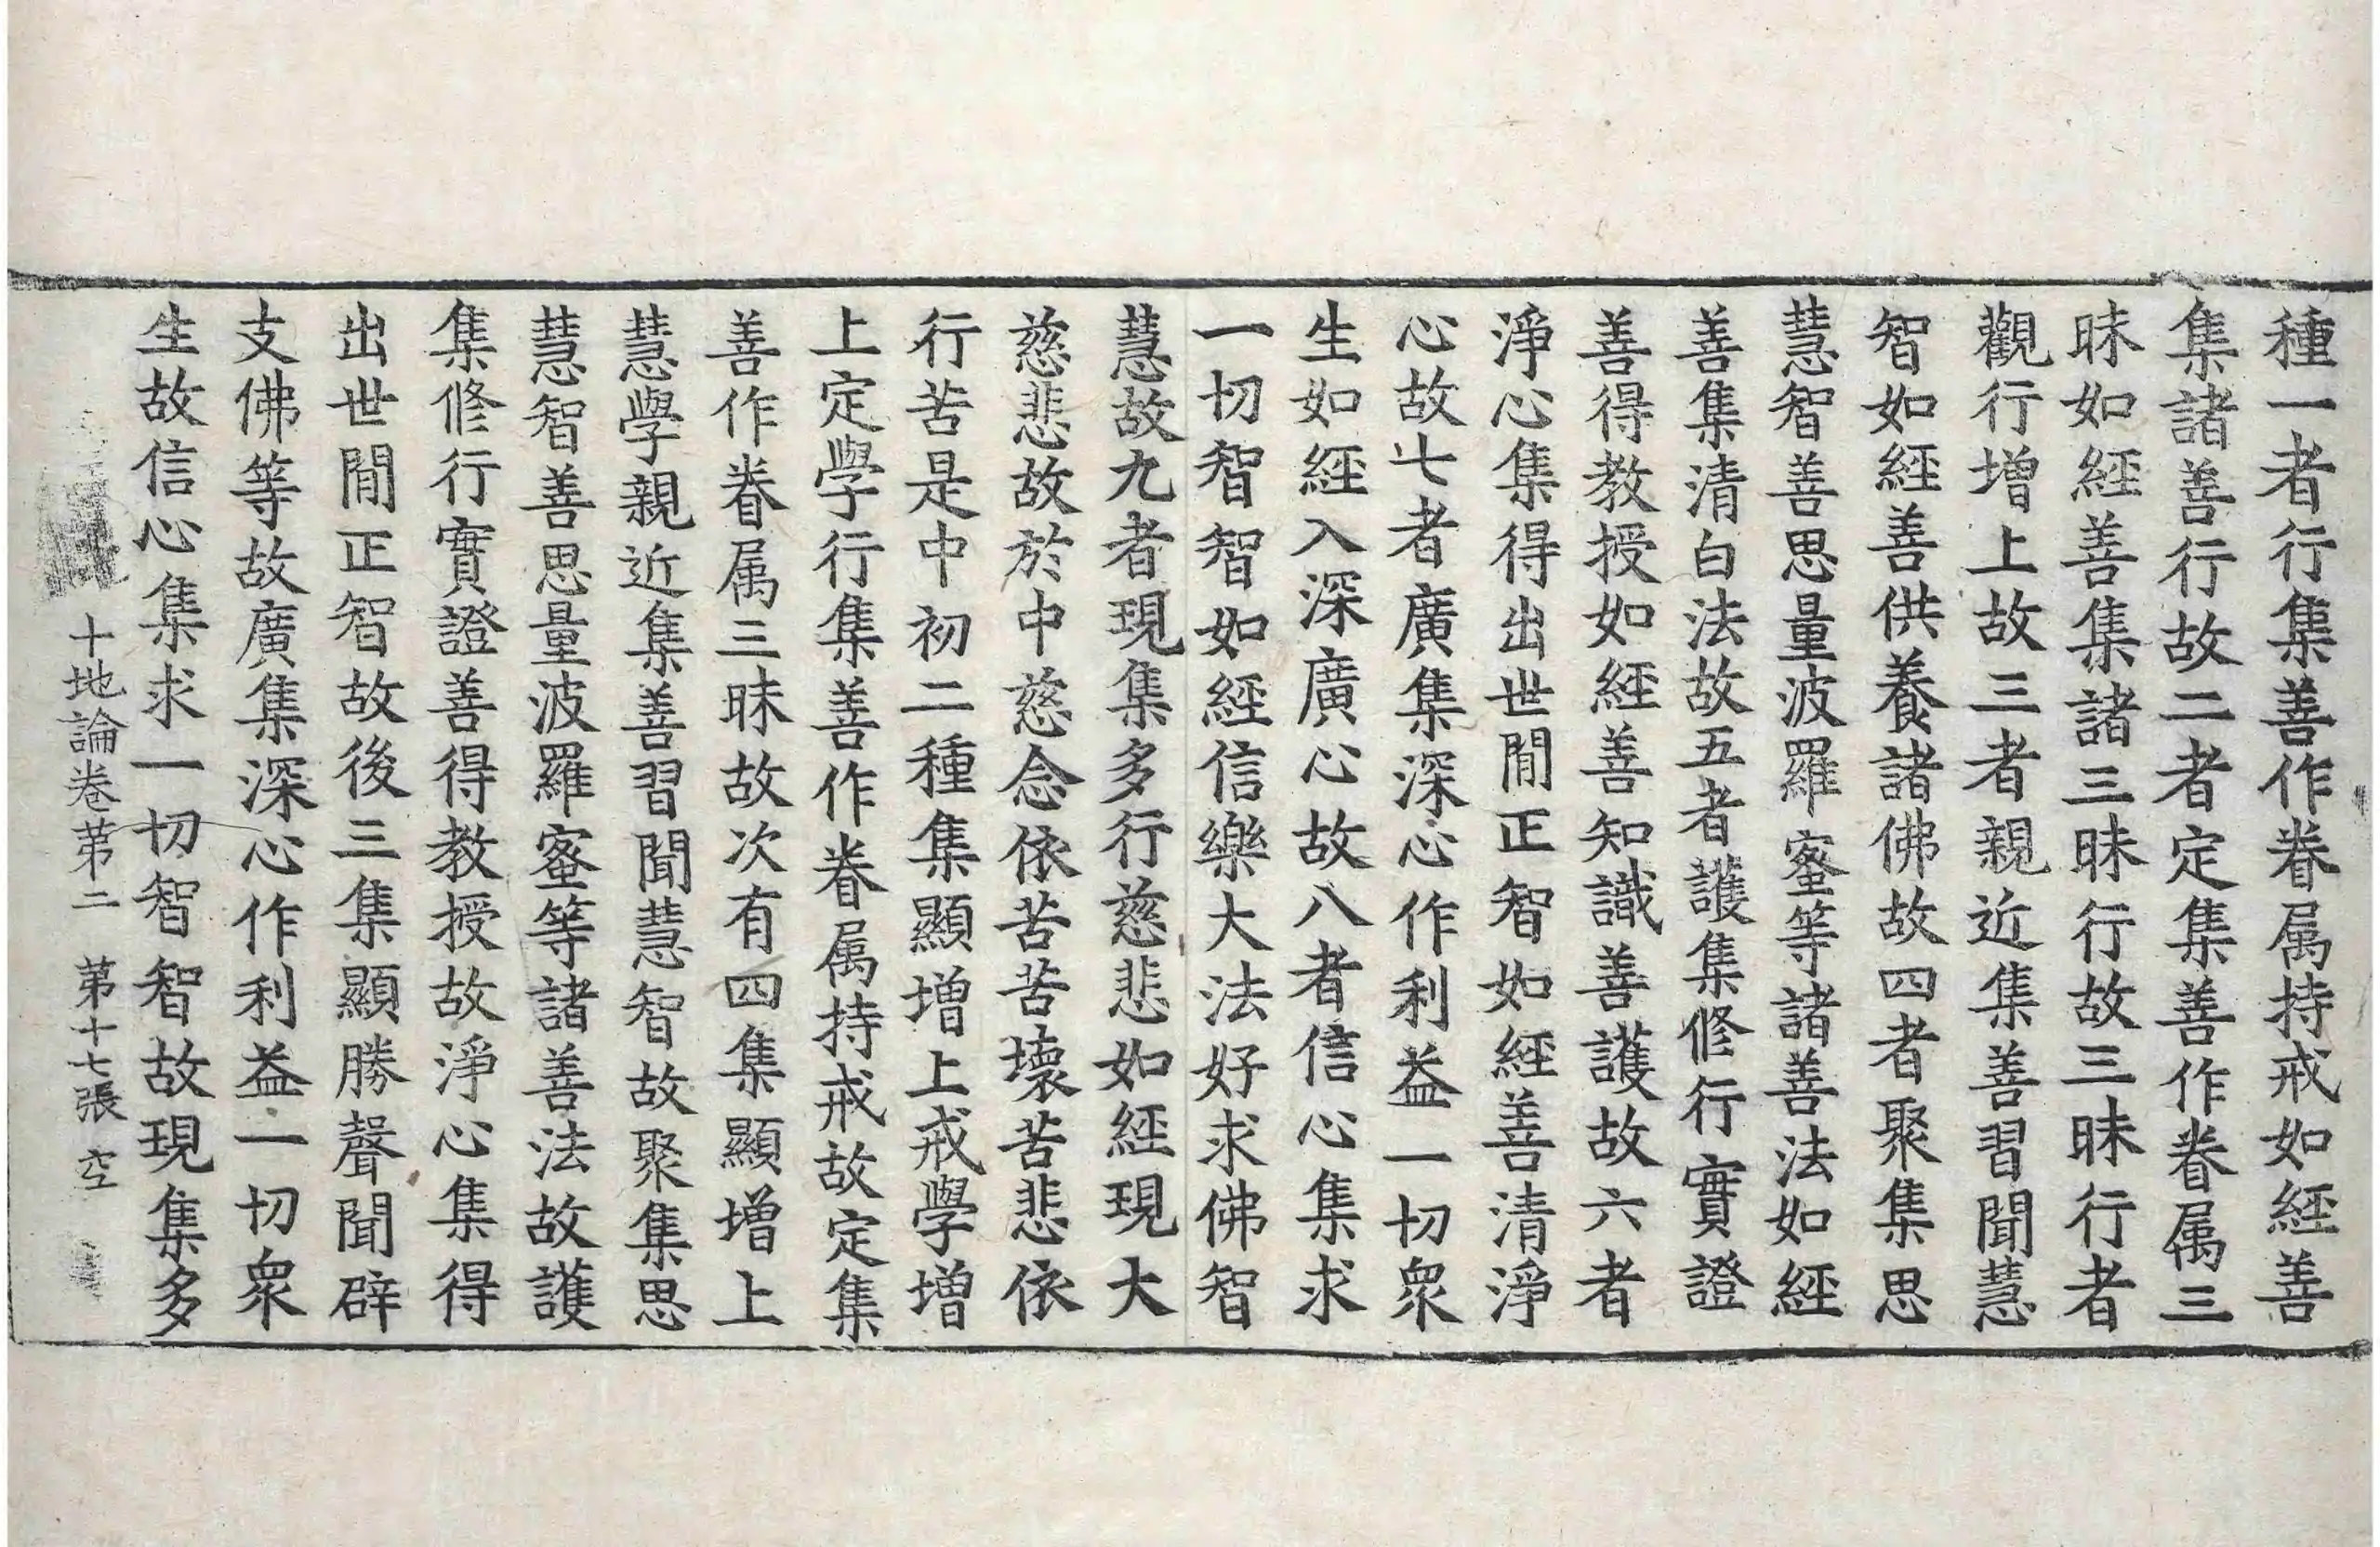 種一者行集善作眷属持戒如經善
集諸善行故二者定集善作眷属三
昧如經善集諸三昧行故三昧行者
觀行增上故三者親近集善習聞慧
智如經善供養諸佛故四者聚集思
慧智善思量波羅蜜等諸善法如經
善集清白法故五者護集修行實證
善得教授如經善知識善護故六者
淨心集得出世閒正智如經善清淨
心故七者廣集深心作利益一切衆
生如經入深廣心故八者信心集求
一切智智如經信樂大法好求佛智
慧故九者現集多行慈悲如經現大
慈悲故於中慈念依苦苦壞苦悲依
行苦是中初二種集顯增上戒學增
上定學行集善作眷属持戒故定集
善作眷属三昧故次有四集顯增上
慧學親近集善習聞慧智故聚集思
慧智善思量波羅蜜等諸善法故護
集修行實證善得教授故淨心集得
出世閒正智故後三集顯勝聲聞辟
支佛等故廣集深心作利益一切衆
生故信心集求一切智智故現集多
十地論卷苐二 第十七張 空